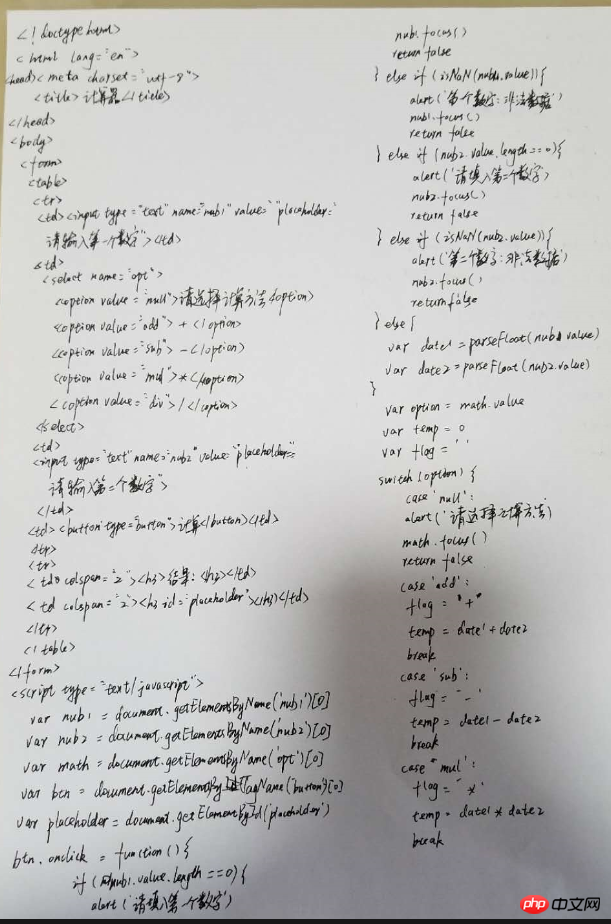 <!doctype html>
<html lang="en">
<head><meta charset="utf-8">
<title>计算器</title>
</head>
<body>
<form>
<table>
<tr>
<td><input type="text" name="nub1" value="" placeholder="
请输入第一个数字"></td>
<td>
<select name="opt">
<option value="null">请选择计算方法<option>
<option value="add">+</option>
<option value="sub">-</option>
<option value="mul">*</option>
<option value="div">/</option>
</select>
<td>
<input type="text" name="nub2" value="" placeholder="
请输入第二个数字">
</td>
<td><button type="button">计算</button></td>
</tr>
<tr>
<td colspan="2"><h3>结果:</h3></td>
<td colspan="2"><h3 id="placeholder"></h3></td>
</tr>
</table>
</form>
<script type="text/javascript">
var nub1 = document.getElementsByName('nub1')[0]
var nub2 = document.getElementsByName('nub2')[0]
var math = document.getElementsByName('opt')[0]
var btn = document.getElementsByTagName('button')[0]
var placeholder = document.getElementById('placeholder')
btn.onclick = function(){
if (nub1.value.length ==0){
alert('请填入第一个数字')
nub1.focus()
return false
} else if (isNaN(nub1.value)){
alert('第一个数字:非法数据')
nub1.focus()
return false
} else if (nub2.value.length==0){
alert('请填入第二个数字')
nub2.focus()
return false
} else if (isNaN(nub2.value)){
alert('第二个数字:非法数据')
nub2.focus()
return false
} else{
var date1 = parseFloat(nub1.value)
var date2 = parseFloat(nub2.value)
}
var option = math.value
var temp = 0
var flag = ' '
switch(option) {
case 'null':
alert('请选择计算方法')
math.focus()
return false
case 'add':
flag = "+"
temp = date1+date2
break
case 'sub':
flag = '-'
temp = date1-date2
break
case 'mul':
flag = '*'
temp = date1*date2
break
php 中文网